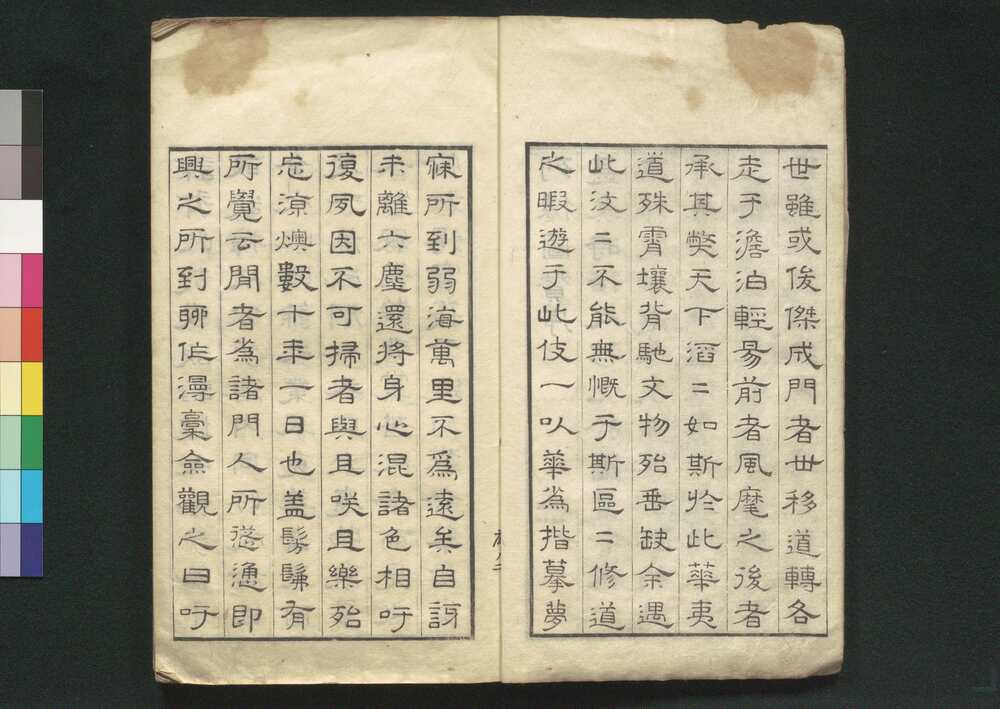 世雖或俊傑成門者世移道轉各
走于澹泊輕易前者風靡之後者
承其弊天下滔二如斯於此華夷
道殊霄壤背馳文物殆垂缺余遇
此汶二不能無慨于斯區二修道
之暇遊于此伎一以華為揩摹夢
寐所到弱海萬里不為遠矣自訝
未離六塵還將身心混諸色相吁
復夙因不可掃者與且咲且樂殆
忘涼燠數十年一日也蓋髣髴有
所覺云間者為諸門人所慫慂即
興之所到聊作漫稾僉觀之曰吁